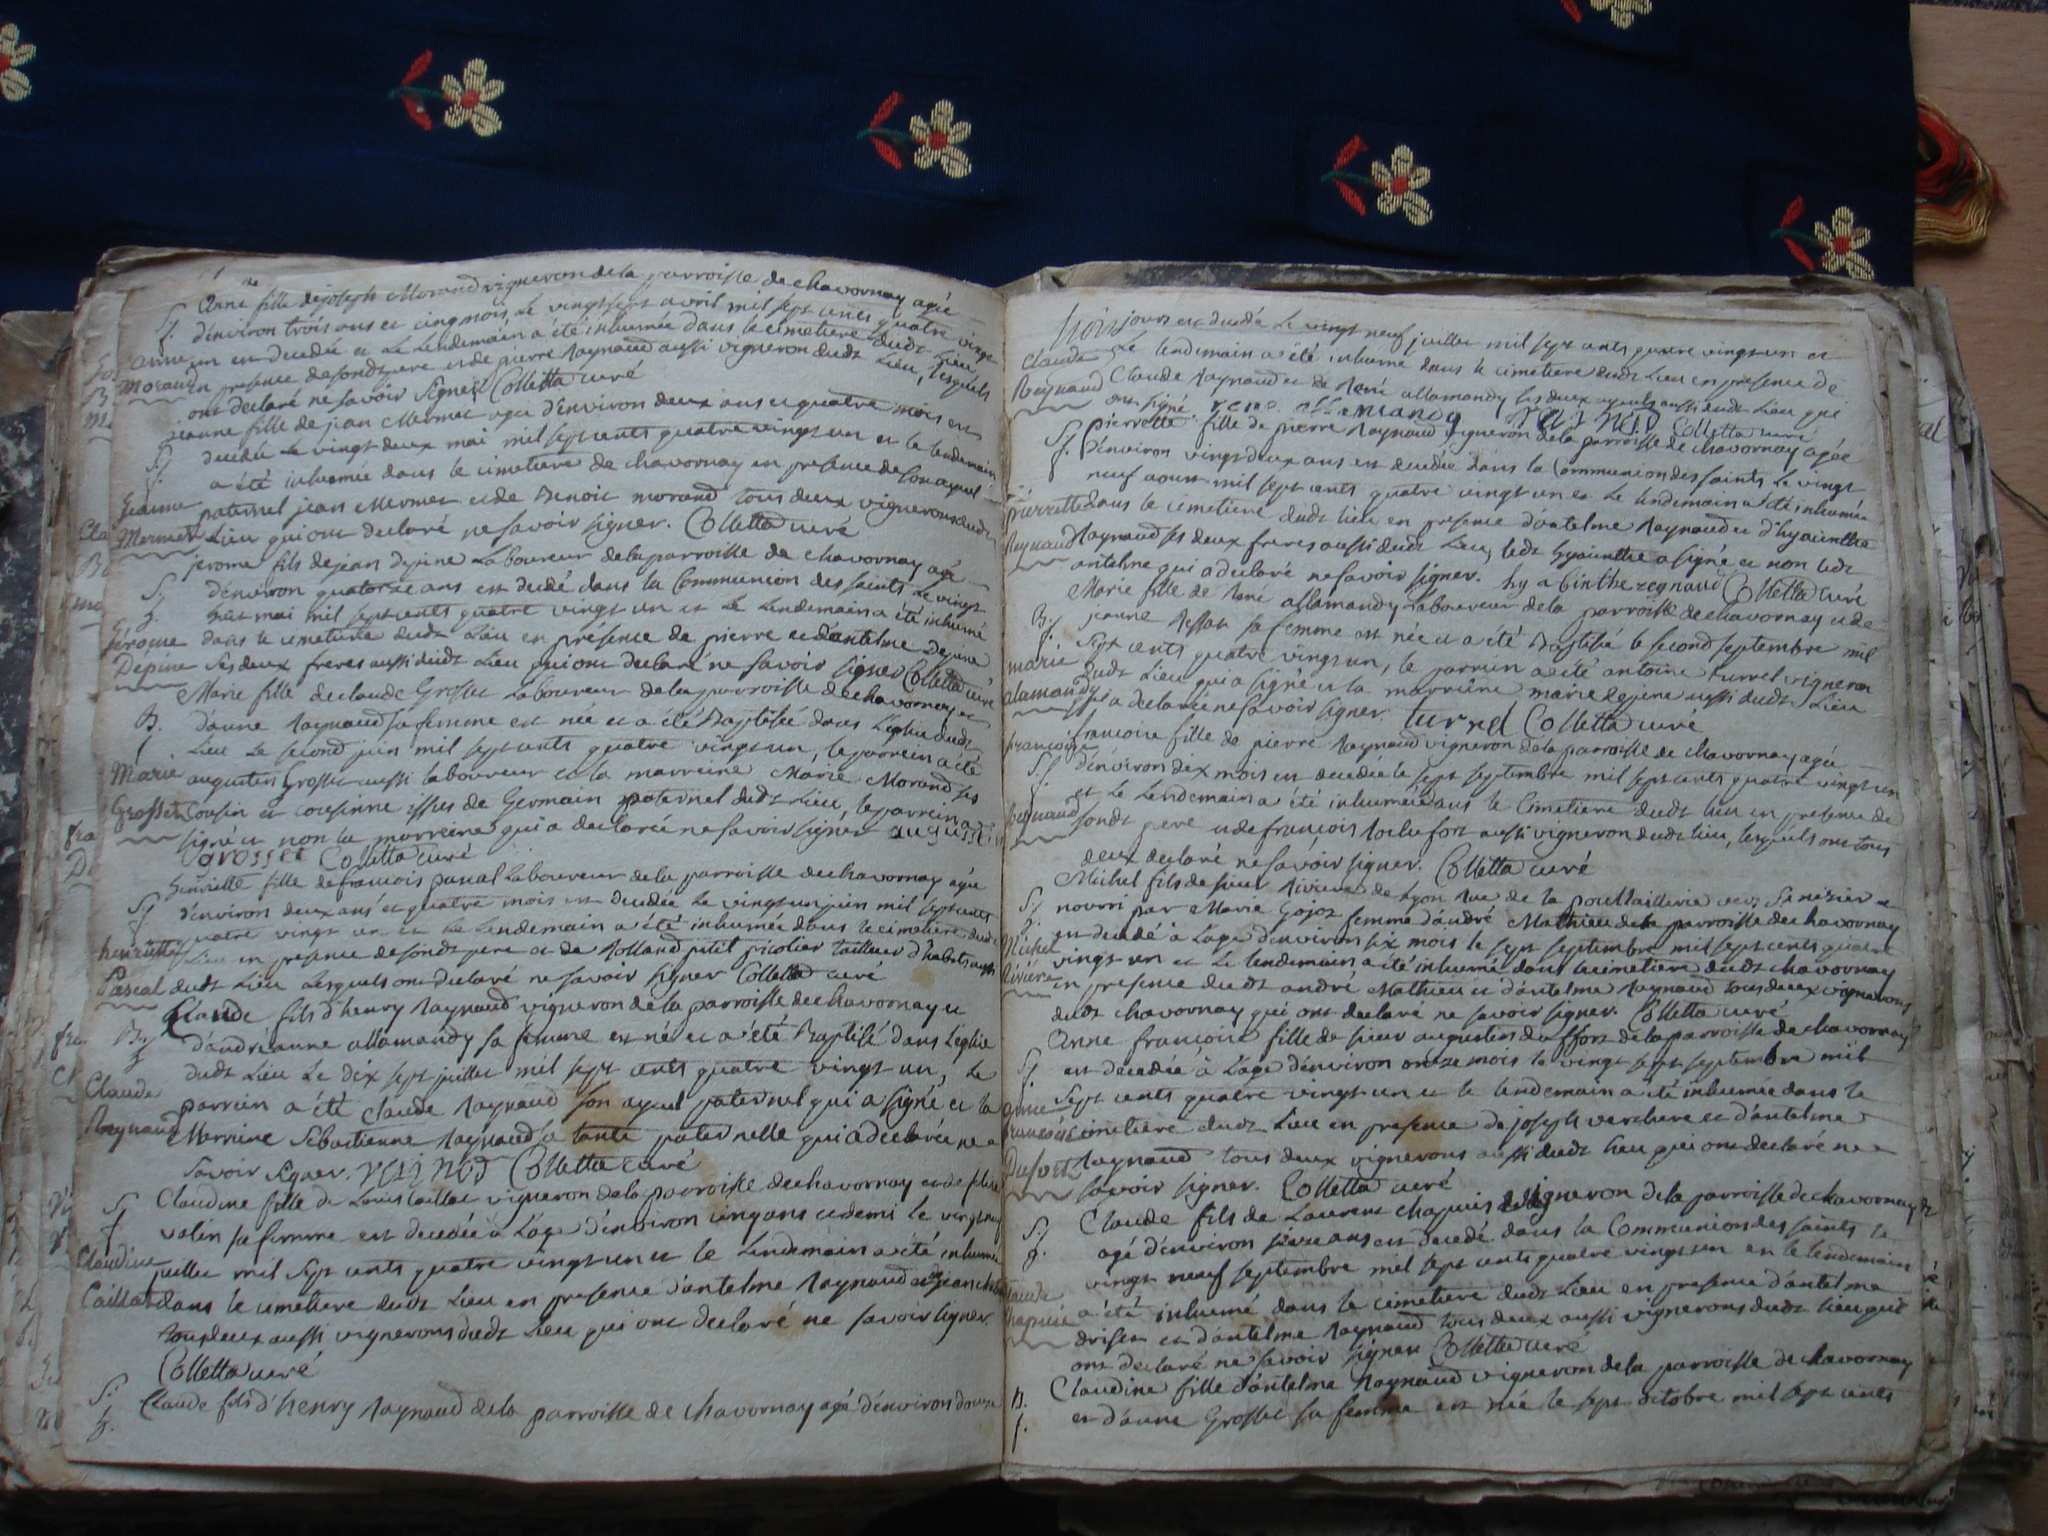 Anne fille de joseph Morand vigneron de la parroisse de chavornay agée
S. d'environ trois ans et cinq mois, le vingt sept avril mil sept cents quatre vingt
anne un est decedée et le lendemain a été inhumée dans le cimetiere dudt Lieu
Morand en presence de sondt pere et de pierre Raynaud aussi vigneron dudt Lieu, lesquels
ont declaré ne savoir signer Colletta curé
jeanne fille de jean Mermet agée d'environ deux ans et quatre mois est
S. decedée le vingt deux mai mil sept cents quatre vingt un et le lendemain
a été inhumée dans le cimetiere de chavornay en presence de son ayeul
Jeanne paternel jean Mermet et de Benoit morand tous deux vignerons dudt
Mermet Lieu qui ont declaré ne savoir signer. Colletta curé
jerome fils de jean depine Laboureur de la parroisse de chavornay agé
S. d'environ quatorze ans est decedé dans la Communion des saints le vingt
huit mai mil sept cents quatre vingt un et le Lendemain a été inhumé
Jérome dans le cimetiere dudt Lieu en présence de pierre et d'antelme Depine
Depine ses deux freres aussi dudt Lieu qui ont declaré ne savoir signer Colletta curé
Marie fille de claude Grosset Laboureur de la parroisse de chavornay et
B. d'anne Raynaud sa femme est née et a été Baptisée dans l'eglise dudt
Lieu le second juin mil sept cents quatre vingt un, le parrein a été
Marie augustin Grosset aussi laboureur et la marreine Marie Morand ses
Grosset cousin et cousinne issus de Germain paternel dudt Lieu, le parrein a
signé et non la marreine qui a declarée ne savoir signer augustin
Grosset Colletta curé
henriette fille de francois pascal Laboureur de la parroisse de chavornay agée
S. d'environ deux ans et quatre mois est decedée le vingt un juin mil sept cents
quatre vingt un et le Lendemain a été inhumée dans le cimetiere dudt
henriette Lieu en presence de sondt pere et de Rolland petit picolier tailleur d'habits aussi
Pascal dudt Lieu Lesquels ont declaré ne savoir signer Colletta curé
Claude fils d'henry Raynaud vigneron de la parroisse de chavornay et
B. d'andréanne allamandy sa femme est né et a été Baptisé dans L'eglise
dudt Lieu Le dix sept juillet mil sept cents quatre vingt un, Le
Claude parrein a été Claude Raynaud son ayeul paternel qui a signé et la
Reynaud Marreine Sebastienne Raynaud sa tante paternelle qui a declarée ne
savoir signer. Colletta curé
S. Claudine fille de Louis caillat vigneron de la parroisse de chavornay et de
valin sa femme est decedée à L'age d'environ cinq ans et demi le vingt
Claudine juillet mil sept cents quatre vingt un et le Lendemain a été inhumée
Caillat dans le cimetiere dudt Lieu en presence d'antelme Raynaud et de
tous deux aussi vignerons dudt Lieu qui ont declaré ne savoir signer
Colletta curé
S. Claude fils d'henry Raynaud de la parroisse de chavornay agé d'environ douze
jours est decedé le vingt neuf juillet mil sept cents quatre vingt un et
Claude le lendemain a été inhumé dans le cimetiere dudt Lieu en presence de
Reynaud Claude Raynaud et de René allamandy les deux ayeuls aussi dudt Lieu qui
ont signé. rene allemandy Colletta curé
S. Pierrette fille de pierre Raynaud vigneron de la parroisse de chavornay agée
d'environ vingt deux ans est decedée dans la Communion des saints le vingt
neuf aoust mil sept cents quatre vingt un et Le lendemain a été inhumée
pierrette dans le cimetiere dudt lieu en presence d'antelme Raynaud et d'hyacinthe
Reynaud Raynaud ses deux freres aussi dudt Lieu, ledt hyacinthe a signé et non ledt
antelme qui a declaré ne savoir signer. hyacinthe reynaud Colletta curé
Marie fille de René allamandy Laboureur de la parroisse de chavornay et de
B. jeanne sa femme est née et a été Baptisée le second septembre mil
sept cents quatre vingt un, le parrein a été antoine turrel vigneron
marie dudt Lieu qui a signé et la marreine marie depine aussi dudt Lieu
alamandy qui a declarée ne savoir signer. turrel Colletta curé
francoise francoise fille de pierre Raynaud vigneron de la parroisse de chavornay agée
S. d'environ dix mois est decedée le sept septembre mil sept cents quatre vingt un
et Le Lendemain a été inhumée dans le Cimetiere dudt lieu en presence de
Reynaud sondt pere et de francois Rochefort aussi vigneron dudt lieu, lesquels ont tous
deux declaré ne savoir signer. Colletta curé
Michel fils de sieur Riviere de Lyon rue de la poullaillerie vers St nizier
S. nourri par Marie Gojoz femme d'andré Mathieu de la parroisse de chavornay
est decedé à L'age d'environ six mois le sept septembre mil sept cents quatre
Michel vingt un et Le lendemain a été inhumé dans le cimetiere dudt chavornay
Riviere en presence dudt andré Mathieu et d'antelme Raynaud tous deux vignerons
dudt chavornay qui ont declaré ne savoir signer. Colletta curé
Anne francoise fille de sieur augustin duffort de la parroisse de chavornay
S. est decedée à L'age d'environ onze mois le vingt sept septembre mil
anne sept cents quatre vingt un et le lendemain a été inhumée dans le
francoise cimetiere dudt Lieu en presence de joseph verchere et d'antelme
Dufort Raynaud tous deux vignerons aussi dudt lieu qui ont declaré ne
savoir signer. Colletta curé
S. Claude fils de Laurent chapuis vigneron de la parroisse de chavornay
agé d'environ ans est decedé dans la Communion des saints le
vingt neuf septembre mil sept cents quatre vingt un et le lendemain
claude a été inhumé dans le cimetiere dudt Lieu en presence d'antelme
chapuis et d'antelme Raynaud tous deux aussi vignerons dudt lieu qui
ont declaré ne savoir signer Colletta curé
B. Claudine fille d'antelme Raynaud vigneron de la parroisse de chavornay
et d'anne Grosset sa femme est née le sept octobre mil sept cents